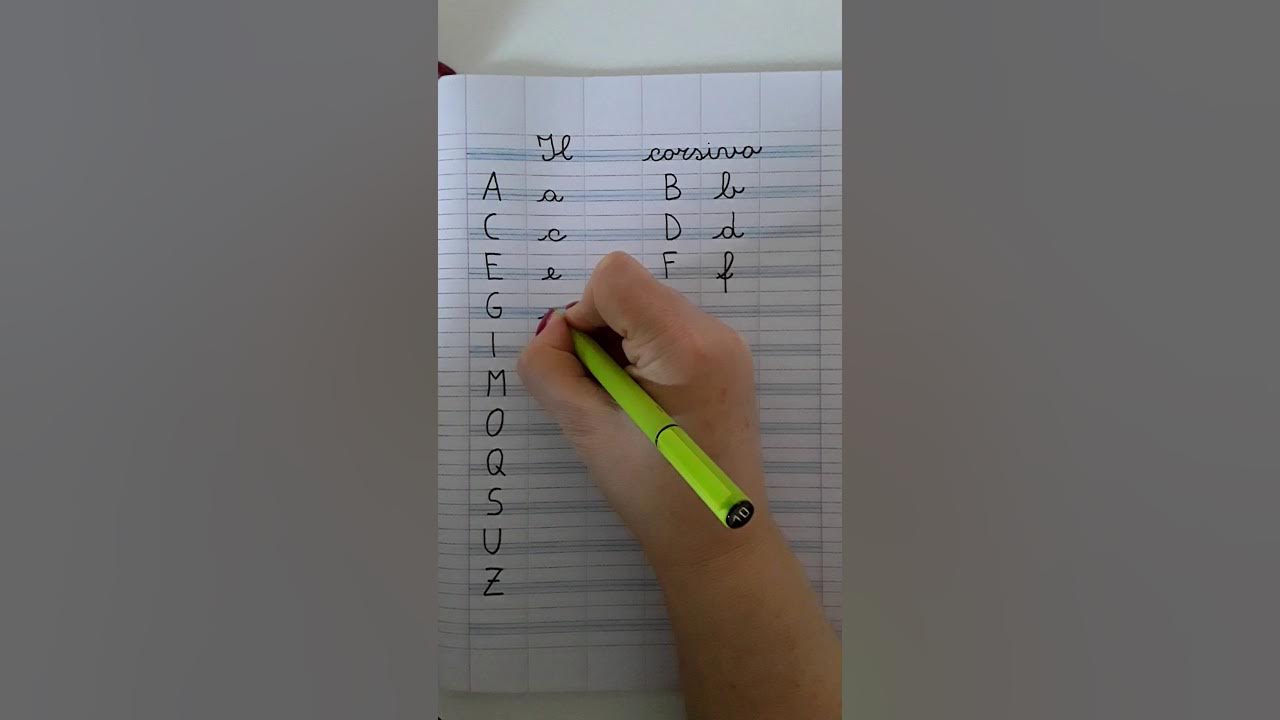 Il corsivo
A a B b
C c D d
E e F f
G
I
M
O
Q
S
U
Z
10